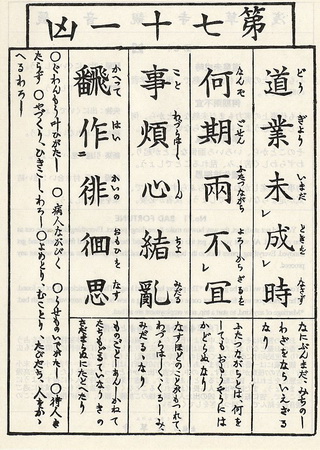 第七十一凶
道業未成時
どう ぎよう いまだ ときを なさず
なにぶんまだ、みちの
わざをならいえざる
なり
何期兩不冝
なんぞ ごせん ふたつながら よろしからざることを
ふたつながらとは、何を
してもおもうやうには
かどらぬなり
事煩心緒亂
こと わづらはし しん ちよ みだる
なすほどのことがもつれて、
わづらはしくこゝろも、
みだるゝなり
飜作徘徊思
かへつて はい かいの おもひを なす
ものごとしあんしかねて
たちもどるていなりきの
さだまらぬにたとたり
叶ひがたし ○病人ながびく ○うせものいでがたし ○待人き
たらず ○やづくりひきこしわろし ○よめとり、むことり たびだち、人をかゝ
へるわろし